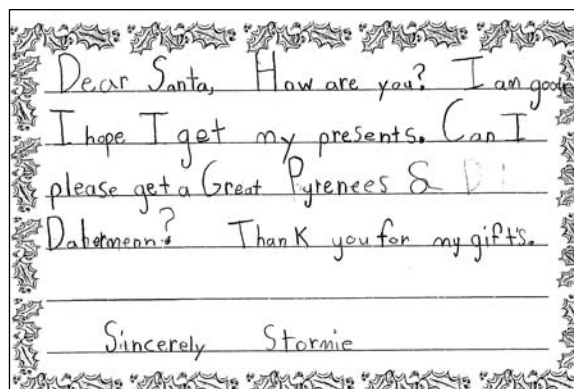 Dear Santa, How are you? I am good.
I hope I get my presents. Can I
please get a Great Pyrenees &
Dabermenn? Thank you for my gift's.
Sincerely Stormie